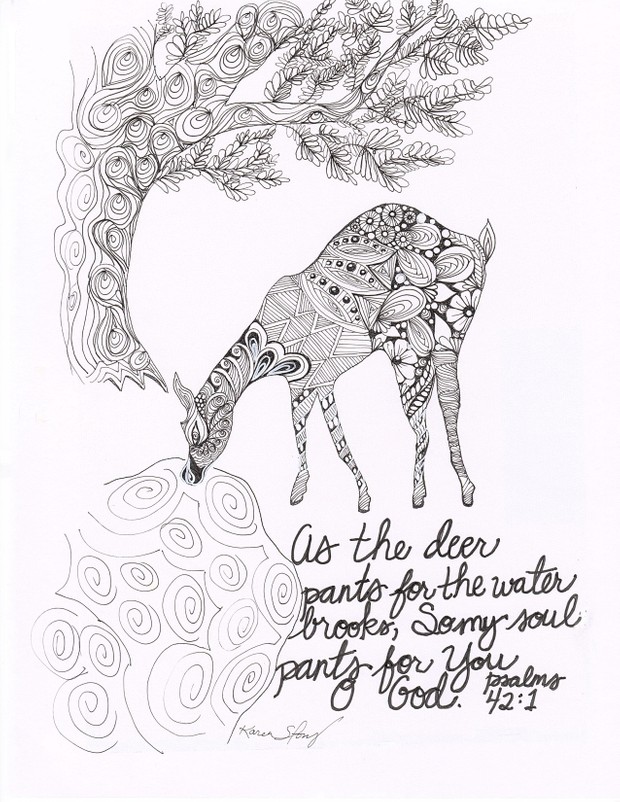 As the deer
pants for the water
brooks, So my soul
pants for You
O God. psalms
42:1
Karen